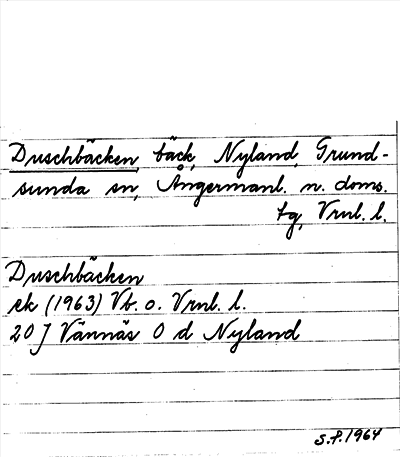 Duschbäcken bäck, Nyland, Grund-
sunda sn, Ångermanl. n. doms.
tg, Vrnl. l.
Duschbäcken
ek (1963) Vb. o. Vrnl. l.
20 J Vännäs O d Nyland
S.P. 1964